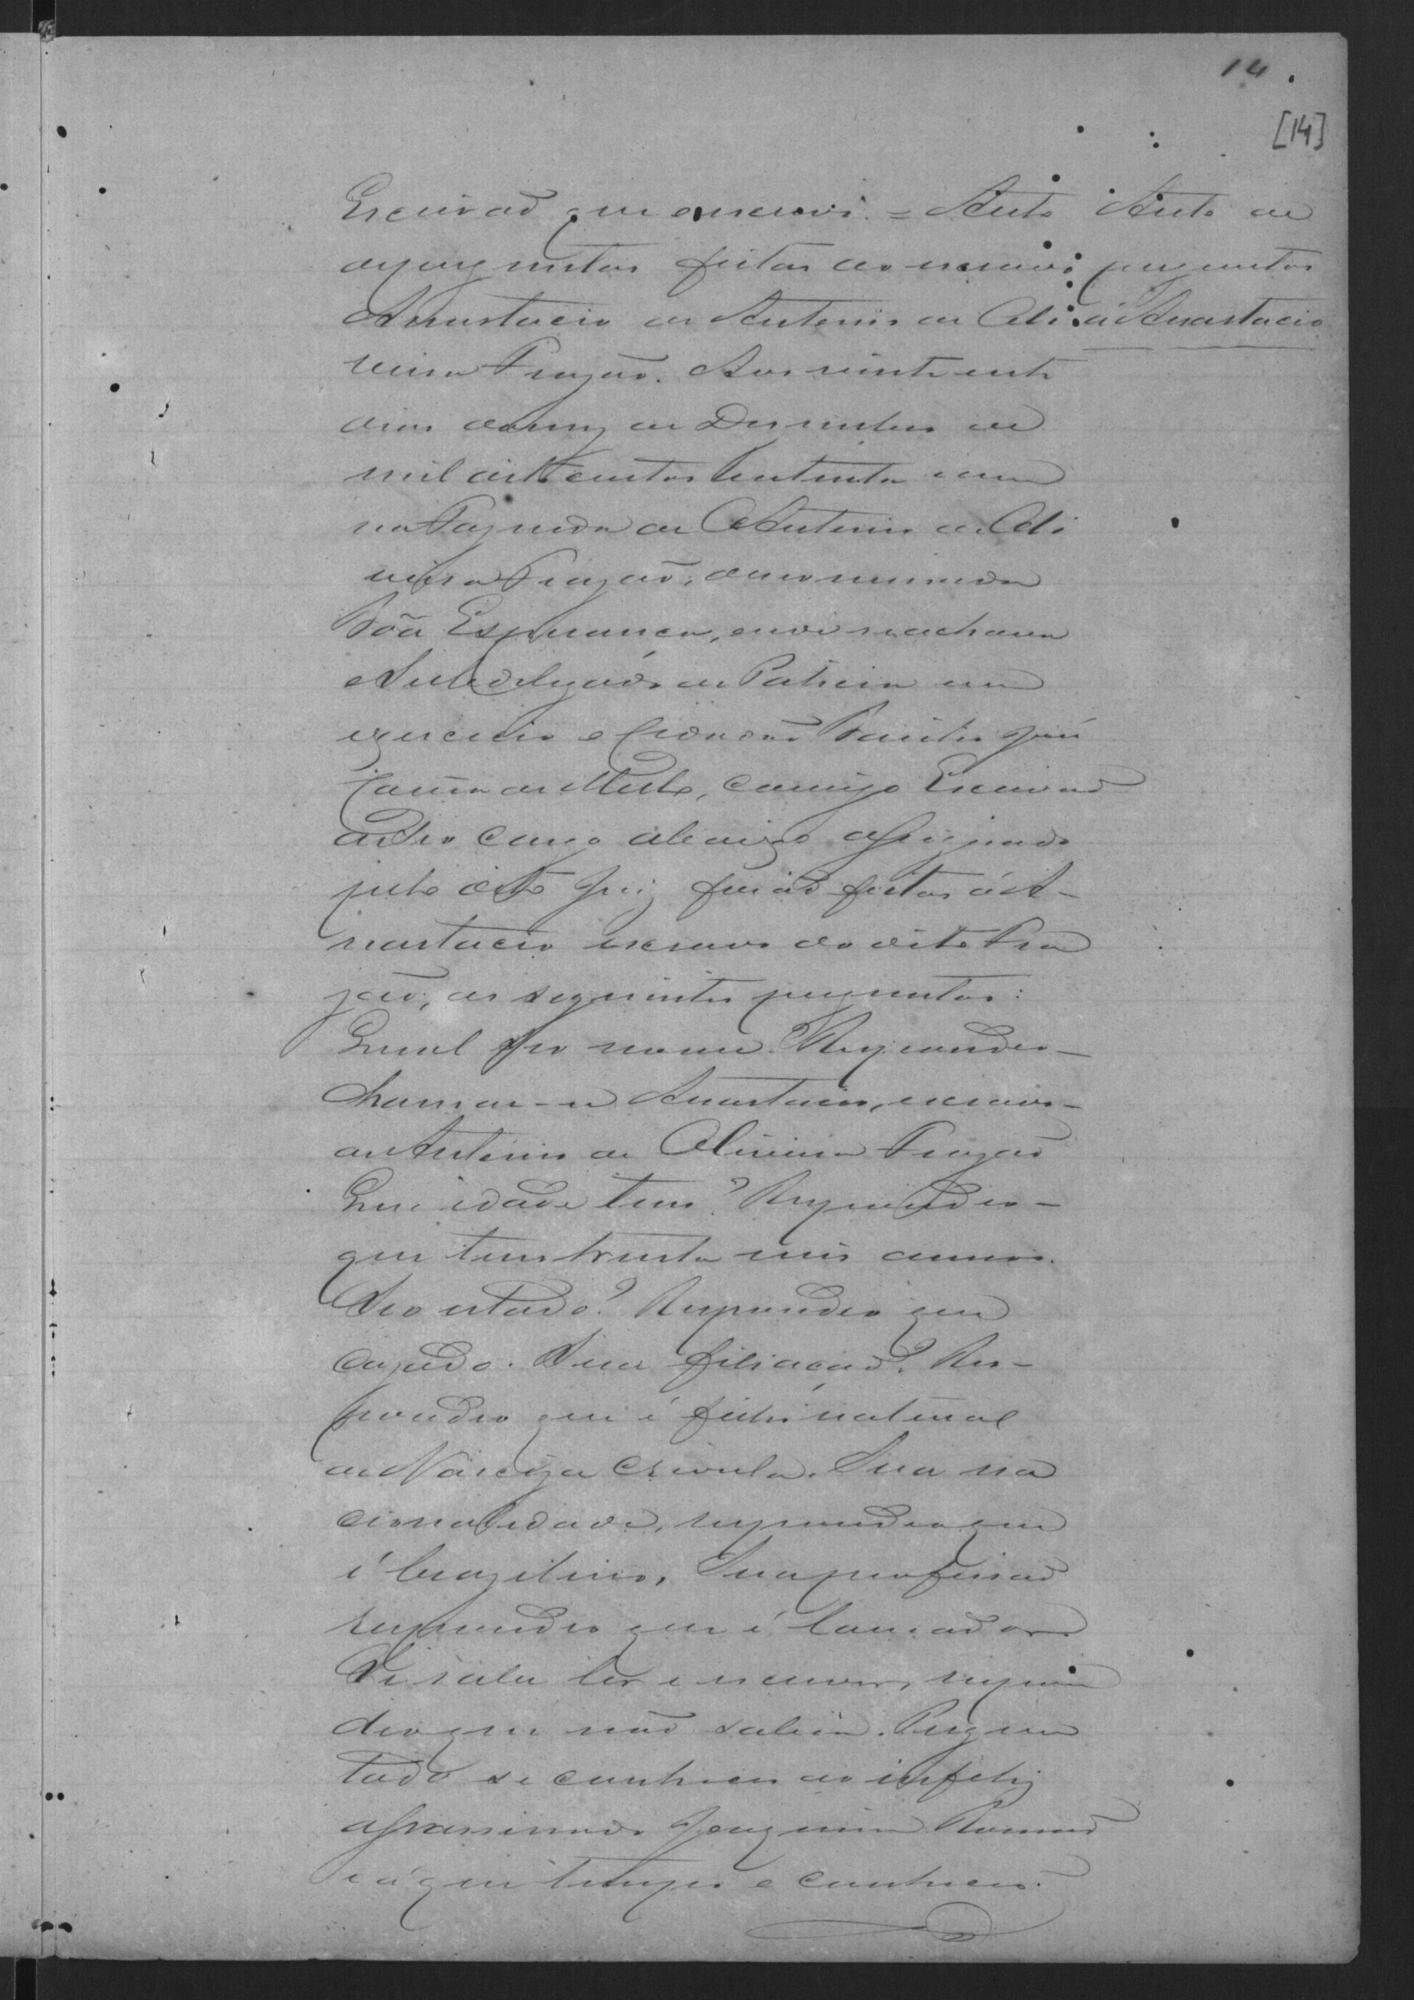 14
[14]
Escrivaõ que o escrevi. = Auto
de perguntas feitas ao escravo
Anastacio de Antonio de Oli
veira Frazaõ. Aos vinte e sete
dias do mez de Desembro de
mil oito centos setenta e um
na Fazenda de Antonio de Oli
veira Frazaõ, denominada
Bôa Esperança, onde se achava
o Subdelegado de Policia em
exercicio o Cidadaõ Bento José
de Mello, comigo Escrivaõ
de seo cargo abaixo assignado
pelo dito Juiz foraõ feitas á A-
nastacio escravo do dito Fra
zaõ, as seguintes perguntas:
Qual seo nome? Respondeo-
chamar-se Anastacio, escravo-
de Antonio de Oliveira Frazaõ
Que idade tem? Respondeo-
que tem trinta annos.
Seo estado? Respondeo que
cazado. Sua filiaçaõ? Res-
pondeo que é filho natural
de Narciza crioula. Sua na
cionalidade, respondeo que
é brazileiro, Sua profissaõ
respondeo que é lavrador
Si sabe ler e escrever, respon
deo que naõ sabia. Pergun
tado se conheceo ao infeliz
assassinado Joaquim
e á que tempo o conheceo.
Auto de
perguntas
á Anastacio